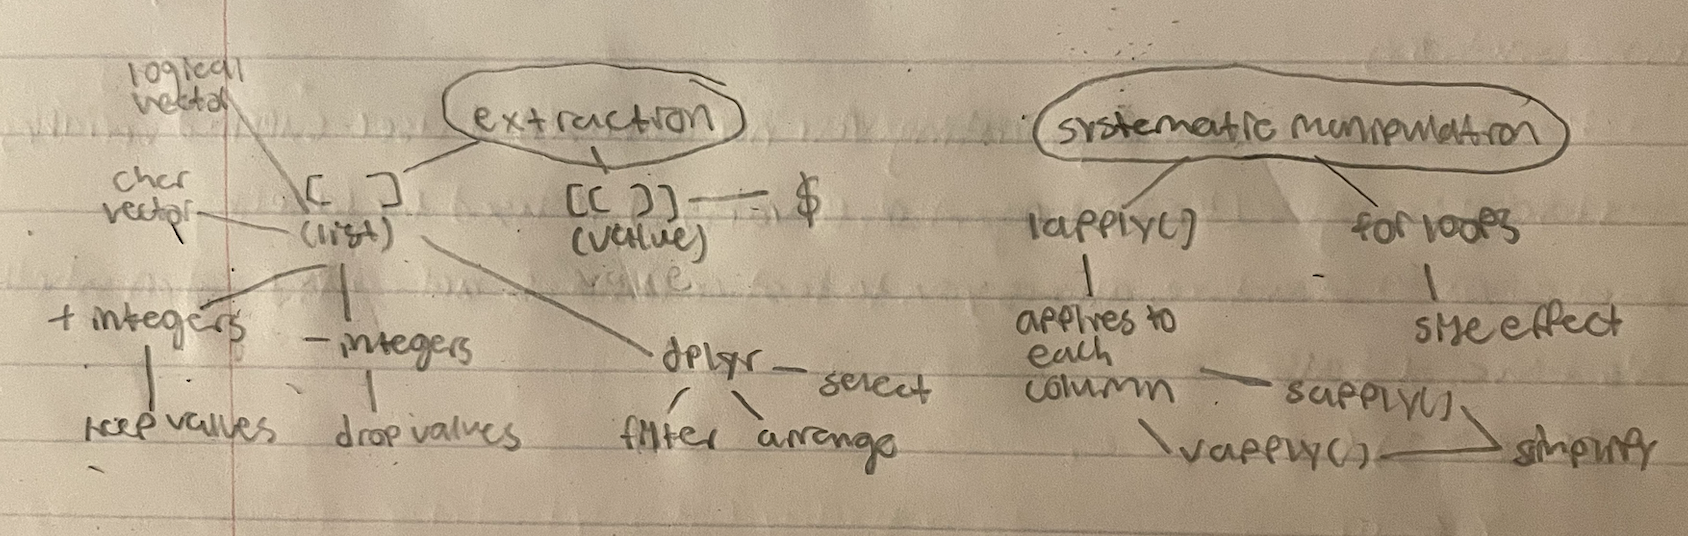 logical
vector
extraction
systematic manipulation
char
vector
[ ]
(list)
[[ ]] — $
(value)
lapply()
for loops
+ integers
- integers
applies to
each
column
side effect
dplyr
select
sapply()
keep values
drop values
filter
arrange
vapply()
simplify